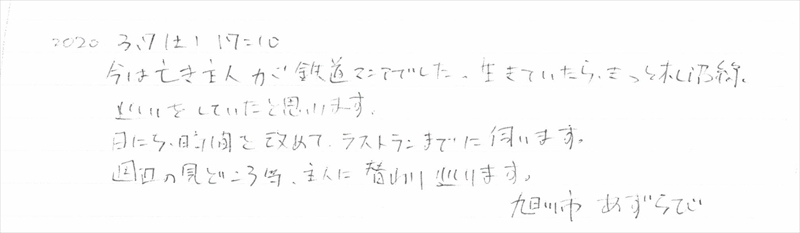 2020 3.7(土) 17:10
今は亡き主人が鉄道マニアでした。生きていたら、きっと札沼線、
巡りをしていたと思います。
日にち、時間を改めて、ラストランまでに伺います。
周辺の見どころ等、主人に替わり巡ります。
旭川市